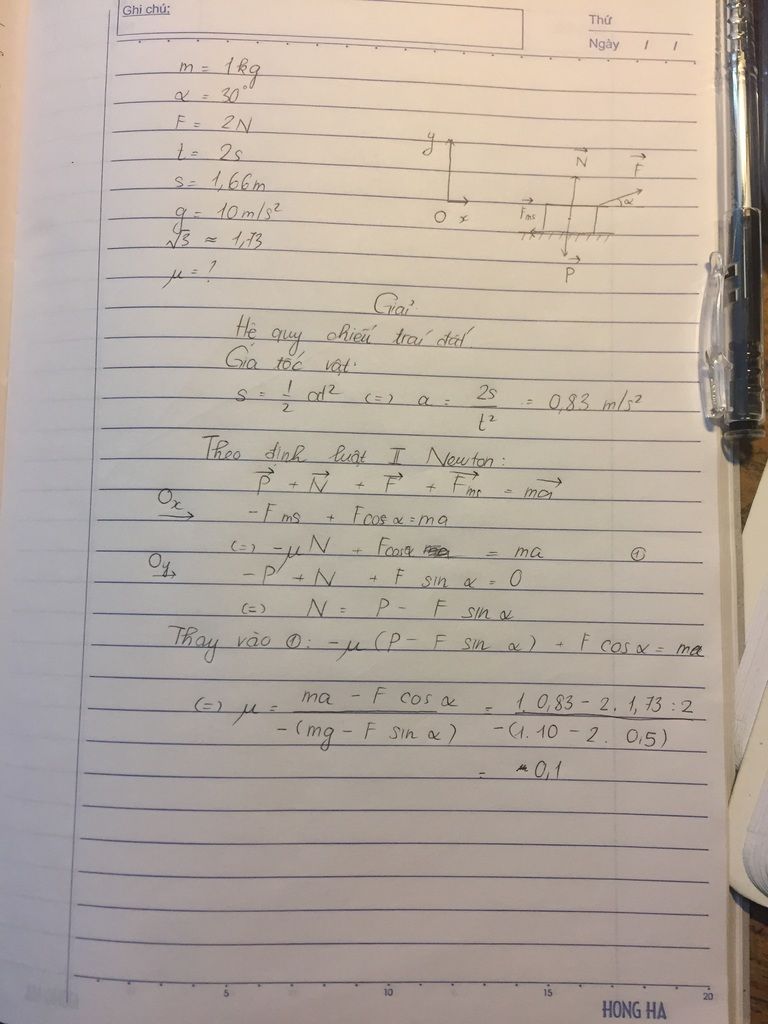 Ghi chú:
Thứ
Ngày / /
m = 1kg
α = 30°
F = 2N
t = 2s
s = 1,66m
g = 10m/s²
√3 ≈ 1,73
μ = ?
y
O x
N
F
α
Fms
P
Giải:
Hệ quy chiếu trái đất
Gia tốc vật:
s = 1/2 at² (=) a = 2s/t² = 0,83 m/s²
Theo định luật II Newton:
P + N + F + Fms = ma
Ox -Fms + Fcos α = ma
(=) -μN + Fcosα = ma ①
Oy -P + N + F sin α = 0
(=) N = P - F sin α
Thay vào ①: -μ (P - F sin α) + F cos α = ma
(=) μ = ma - F cos α / -(mg - F sin α) = 1. 0,83 - 2. 1,73 : 2 / -(1. 10 - 2. 0,5)
= 0,1
5 10 15 20
HONG HA